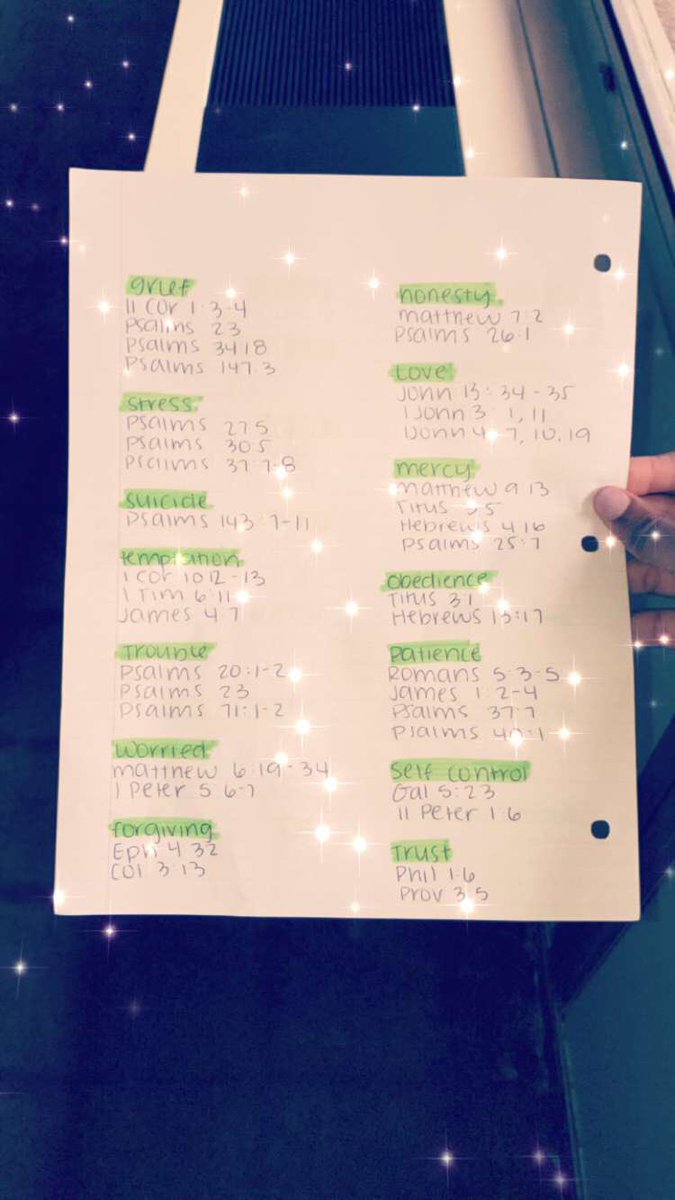 grief
II cor 1:3-4
Psalms 23
Psalms 34:18
Psalms 147:3
stress
Psalms 27:5
Psalms 30:5
Psalms 37:7-8
suicide
Psalms 143:7-11
temptation
1 cor 10:12-13
1 Tim 6:11
James 4:7
Trouble
Psalms 20:1-2
Psalms 23
Psalms 71:1-2
worried
matthew 6:19-34
1 Peter 5:6-7
forgiving
Eph 4:32
Col 3:13
honesty
matthew 7:2
Psalms 26:1
Love
John 13:34-35
1 John 3:1,11
1John 4:7,10,19
mercy
matthew 9:13
Titus 3:5
Hebrews 4:16
Psalms 25:7
Obedience
Titus 3:1
Hebrews 13:17
Patience
Romans 5:3-5
James 1:2-4
Psalms 37:7
Psalms 40:1
Self control
Gal 5:23
II Peter 1:6
Trust
Phil 1:6
Prov 3:5